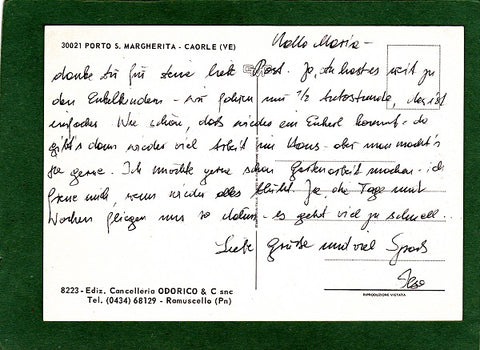 30021 PORTO S. MARGHERITA - CAORLE (VE)
Hallo Maria -
danke dir für deine liebe Post. Ja, du hast es weit zu
den Enkelkindern - wir fahren nur 1/2 Autostunde, das ist
einfacher. Wie schön, daß wieder ein Enkerl kommt - da
gibt's dann wieder viel Arbeit im Haus - aber man macht's
ja gerne. Ich möchte gerne schon Gartenarbeit machen - ich
freue mich, wenn wieder alles blüht. Ja, die Tage und
Wochen fliegen nur so dahin - es geht viel zu schnell...
Liebe Grüße und viel Spass
Ilse
8223 - Ediz. Cancelleria ODORICO & C snc
Tel. (0434) 68129 - Ramuscello (Pn)
RIPRODUZIONE VIETATA